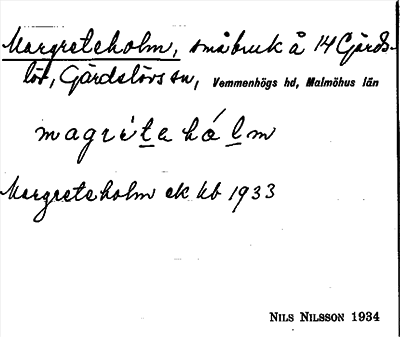 Margreteholm, småbruk å 14 Gärds-
löv, Gärdslövs sn, Vemmenhögs hd, Malmöhus län
magrítahólm
Margreteholm ek kb 1933
NILS NILSSON 1934